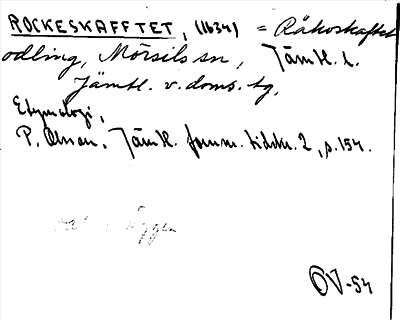 ROCKESKAFFTET, (1634) = Råkoskaftet
odling, Mörsils sn, Jämtl. l.
Jämtl. v. doms. tg,
Etymologi,
P. Olsson, Jämtl. fornm. tidskr. 2, s. 154.
OV-54